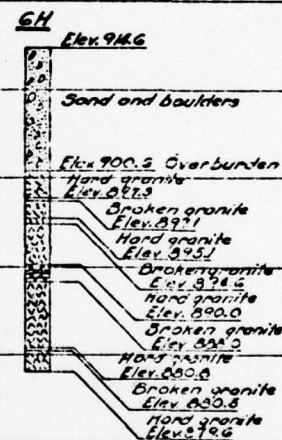 6H
Elev. 914.6
Sand and boulders
Elev. 900.6 Overburden
Hard granite
Elev. 897.3
Broken granite
Elev. 897.1
Hard granite
Elev. 895.1
Broken granite
Elev.
Hard granite
Elev. 890.0
Broken granite
Elev.
Hard granite
Elev. 880.8
Broken granite
Elev.
Hard granite
Elev. 879.6